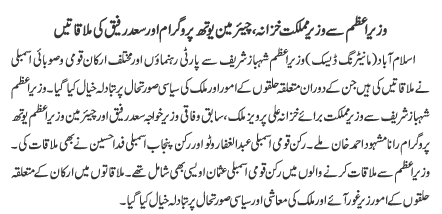 وزیراعظم سے وزیر مملکت خزانہ، چیئرمین یوتھ پروگرام اور سعد رفیق کی ملاقاتیں
اسلام آباد (مانیٹرنگ ڈیسک) وزیراعظم شہباز شریف سے پارٹی رہنماؤں اور مختلف ارکان قومی و صوبائی اسمبلی
نے ملاقاتیں کی ہیں جن کے دوران متعلقہ حلقوں کے امور اور ملک کی سیاسی صورتحال پر تبادلہ خیال کیا گیا۔ وزیراعظم
شہباز شریف سے وزیر مملکت برائے خزانہ علی پرویز ملک، سابق وفاقی وزیر خواجہ سعد رفیق اور چیئرمین وزیراعظم یوتھ
پروگرام رانا مشہود احمد خان ملے۔ رکن قومی اسمبلی عبدالغفار وٹو اور رکن پنجاب اسمبلی فدا حسین نے بھی ملاقات کی۔
وزیراعظم سے ملاقات کرنے والوں میں رکن قومی اسمبلی عثمان اویسی بھی شامل تھے۔ ملاقاتوں میں ارکان کے متعلقہ
حلقوں کے امور زیر غور آئے اور ملک کی معاشی اور سیاسی صورتحال پر تبادلہ خیال کیا گیا۔